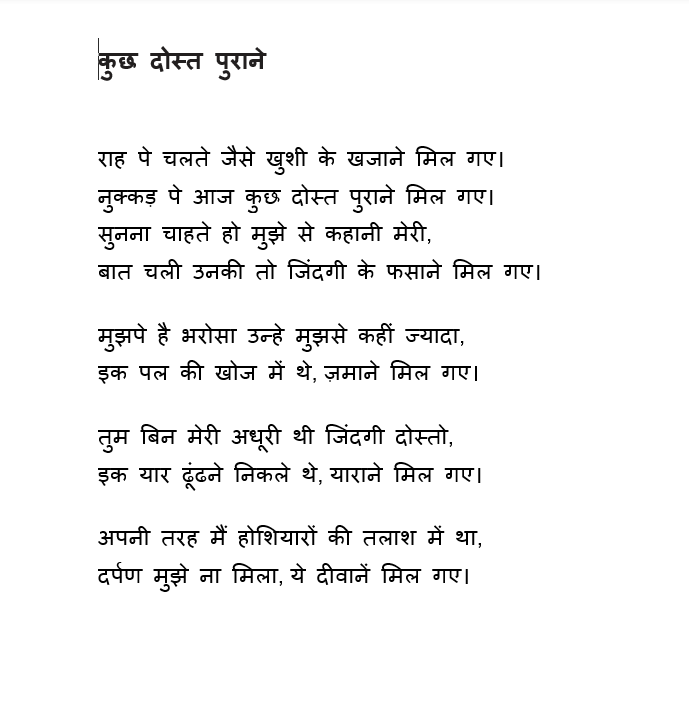 कुछ दोस्त पुराने
राह पे चलते जैसे खुशी के खजाने मिल गए।
नुक्कड़ पे आज कुछ दोस्त पुराने मिल गए।
सुनना चाहते हो मुझे से कहानी मेरी,
बात चली उनकी तो जिंदगी के फसाने मिल गए।
मुझपे है भरोसा उन्हे मुझसे कहीं ज्यादा,
इक पल की खोज में थे, ज़माने मिल गए।
तुम बिन मेरी अधूरी थी जिंदगी दोस्तो,
इक यार ढूंढने निकले थे, याराने मिल गए।
अपनी तरह मैं होशियारों की तलाश में था,
दर्पण मुझे ना मिला, ये दीवानें मिल गए।